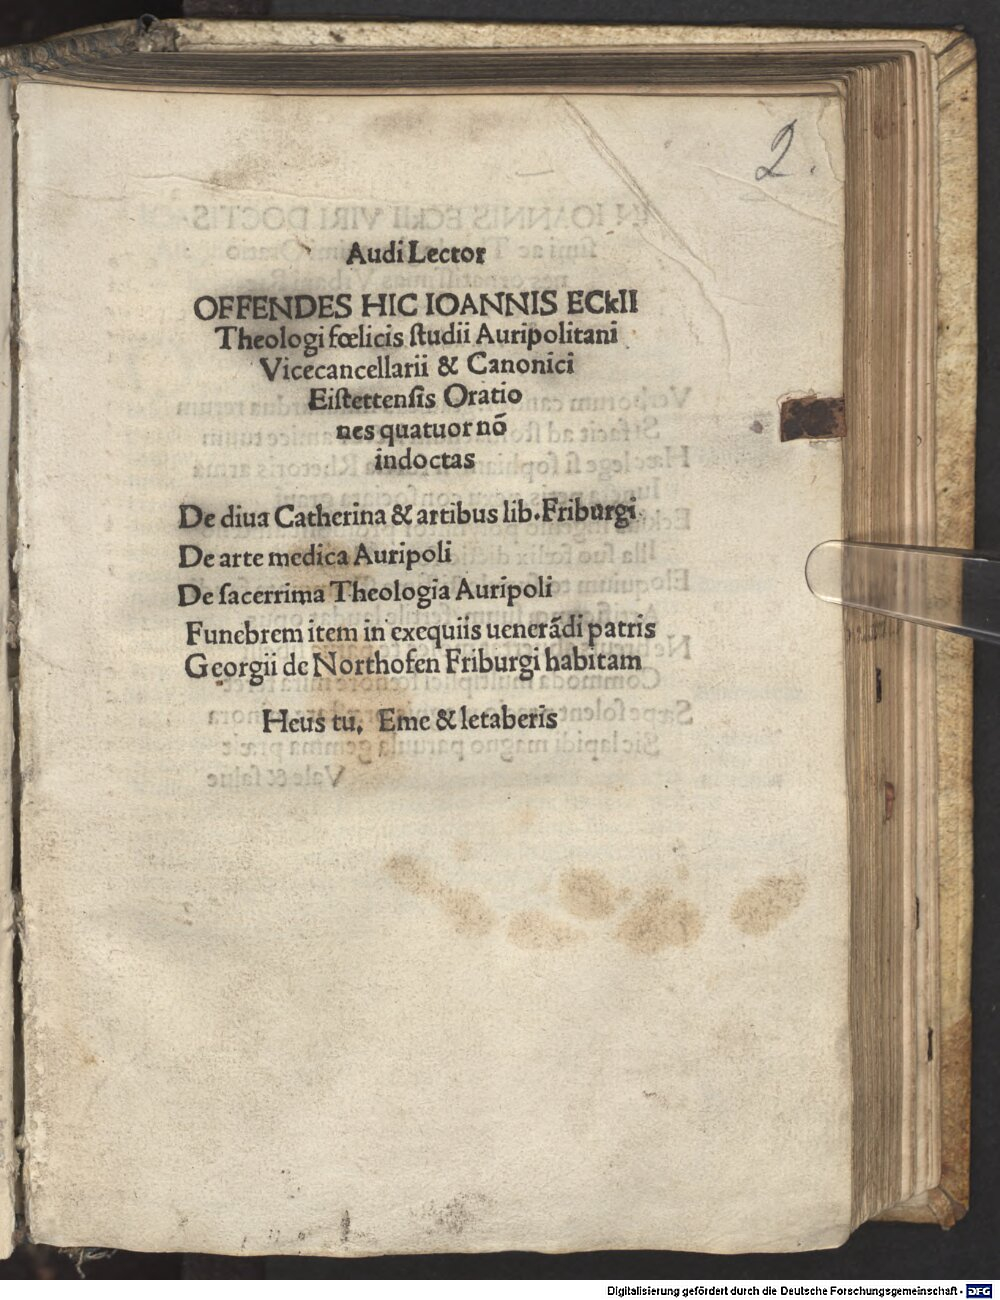 2.
Audi Lector
OFFENDES HIC IOANNIS ECkII
Theologi fœlicis ſtudii Auripolitani
Vicecancellarii & Canonici
Eiſtettenſis Oratio
nes quatuor nõ
indoctas
De diua Catherina & artibus lib. Friburgi
De arte medica Auripoli
De ſacerrima Theologia Auripoli
Funebrem item in exequiis uenerãdi patris
Georgii de Northofen Friburgi habitam
Heus tu, Eme & letaberis
Digitalisierung gefördert durch die Deutsche Forschungsgemeinschaft - DFG